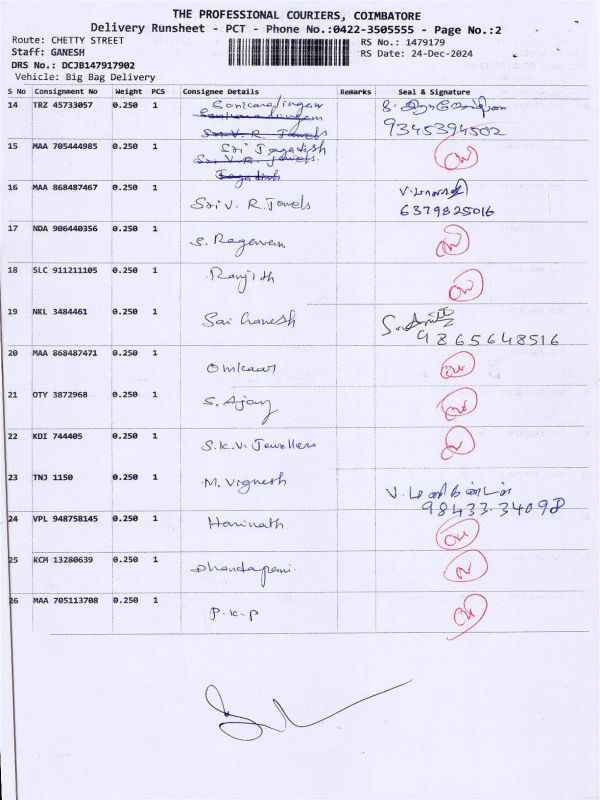 THE PROFESSIONAL COURIERS, COIMBATORE
Delivery Runsheet - PCT - Phone No.:0422-3505555 - Page No.:2
Route: CHETTY STREET
RS No.: 1479179
Staff: GANESH
RS Date: 24-Dec-2024
DRS No.: DCJB147917902
Vehicle: Big Bag Delivery
S No Consignment No Weight PCS Consignee Details Remarks Seal & Signature
14 TRZ 45733057 0.250 1
Sri V. R. Jewels
9345394502
15 MAA 705444985 0.250 1 Sri Jagadish
Sri V. R. Jewels.
Jagadish
16 MAA 868487467 0.250 1 Sri V. R. Jewels
6379825016
17 NDA 906440356 0.250 1 S. Ragavan
18 SLC 911211105 0.250 1 Ranjith
19 NKL 3484461 0.250 1 Sai Ganesh
9865648516
20 MAA 868487471 0.250 1 Omkaar
21 OTY 3872968 0.250 1 S. Ajay
22 KDI 744405 0.250 1 S.K.V. Jewellers
23 TNJ 1150 0.250 1 M. Vignesh
98433.34098
24 VPL 948758145 0.250 1 Harinath
25 KCM 13280639 0.250 1 Dhandapani.
26 MAA 705113708 0.250 1 P.K.P